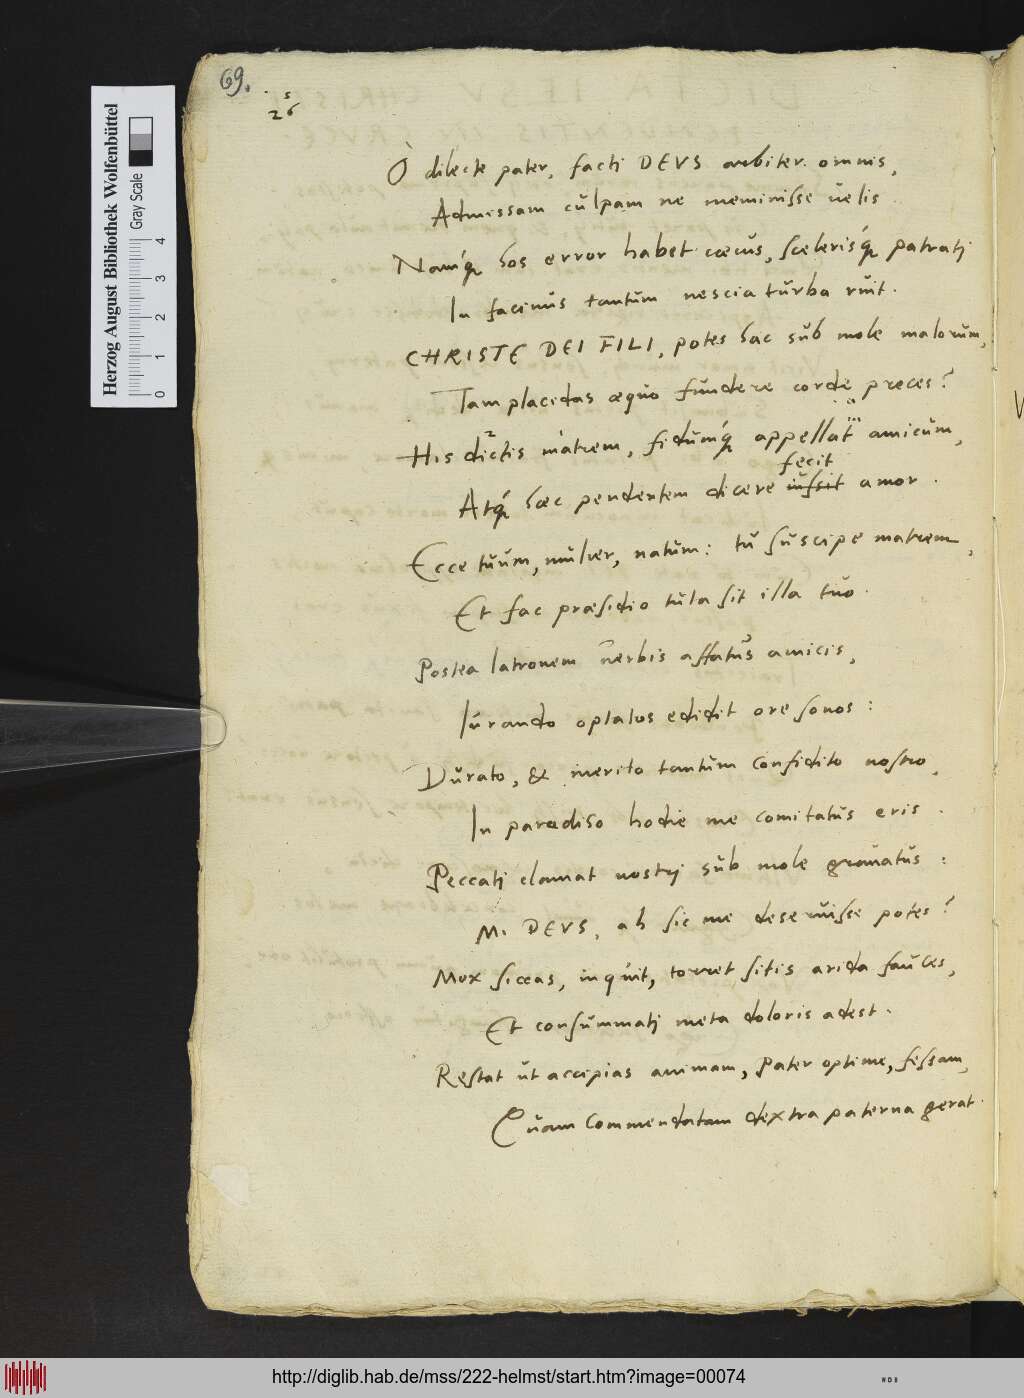 69.
5
26
O dilecte pater, facti DEUS arbiter omnis,
Admissam culpam ne meminisse velis
Namq́; hos error habet cæcus, scelerisq́; patratj
In facinus tantum nescia turba ruit.
CHRISTE DEI FILI, potes hac sub mole malorum,
Tam placidas æquo fundere corde preces?
His dictis matrem, fidumq́; appellat amicum,
fecit
Atq́; hæc pendentem dicere iussit amor.
Ecce tuum, mulier, natum: tu suscipe matrem,
Et fac præsidio tuta sit illa tuo.
Postea latronem verbis affatus amicis,
Iurando optatos edidit ore sonos:
Durato, & merito tantum confidito nostro,
In paradiso hodie me comitatus eris.
Peccatj clamat nostrj sub mole gravatus:
Mi DEUS, ah sic me deseruisse potes?
Mox siccas, inquit, torret sitis arida fauces,
Et consummatj meta doloris adest.
Restat ut accipias animam, Pater optime, fessam,
Quam commendatam dextra paterna gerat.
Herzog August Bibliothek Wolfenbüttel
Gray Scale
0 1 2 3 4
http://diglib.hab.de/mss/222-helmst/start.htm?image=00074